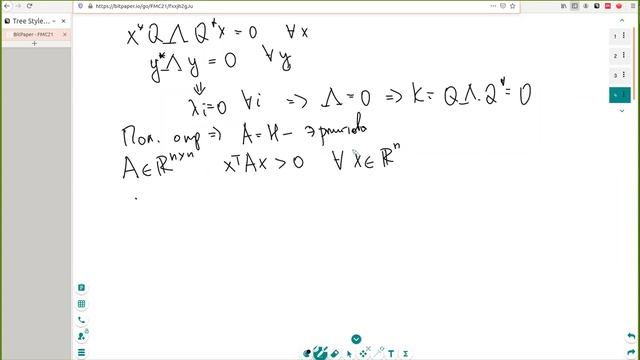 Tree Style...
BitPaper - FMC21
https://bitpaper.io/go/FMC21/fxxjh2gJu
x* Q Λ Q* x = 0 ∀x
y* Λ y = 0 ∀y
⇓
λi = 0 ∀i ⇒ Λ = 0 ⇒ K = Q Λ Q* = 0
Пол. опр ⇒ A = H - эрмитова
A ∈ ℝ^{n×n} xᵀAx > 0 ∀ x ∈ ℝⁿ
1
2
3
4